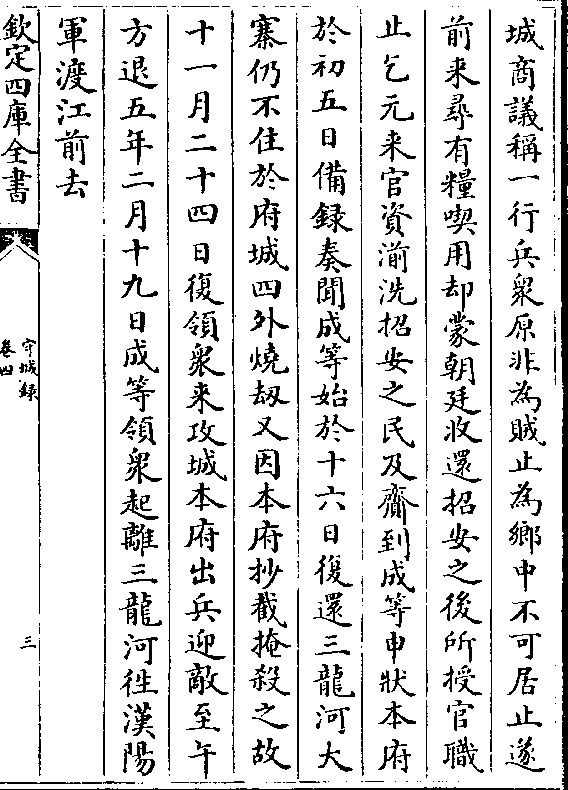 城商議稱一行兵衆原非為賊止為鄉中不可居止遂
前来尋有糧喫用却蒙朝廷收還招安之後所授官職
止乞元来官資湔洗招安之民及齎到成等申狀本府
於初五日備録奏聞成等始於十六日復還三龍河大
寨仍不住於府城四外燒刼又因本府抄截掩殺之故
十一月二十四日復領衆来攻城本府出兵迎敵至午
方退五年二月十九日成等領衆起離三龍河徃漢陽
軍渡江前去
欽定四庫全書
守城録
卷四
三